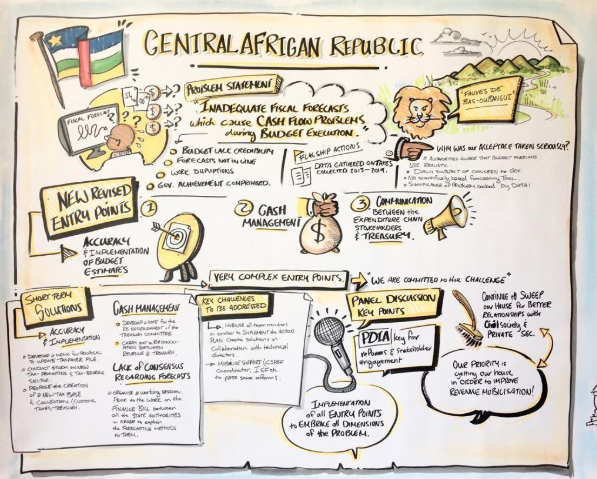 CENTRAL AFRICAN REPUBLIC
FISCAL FORECAST
PROBLEM STATEMENT
"INADEQUATE FISCAL FORECASTS
which cause CASH FLOW PROBLEMS
during BUDGET EXECUTION."
BUDGET LACK CREDIBILITY
FORECASTS NOT IN LINE
WORK DISRUPTIONS
GOV. ACHIEVEMENT COMPROMISED.
FLAGSHIP ACTIONS
DATA GATHERED ON TAXES
COLLECTED 2015-2019.
"FAUVES DE
BAS-OUBANGUI"
WHY WAS our ACCEPTANCE TAKEN SERIOUSLY?
AUTHORITIES AWARE THAT BUDGET FORECASTS
REALISTIC
DAILY SUBJECT OF CONCERN TO GOV.
No scientifically based forecasting Tool
SIGNIFICANCE of PROBLEM backed by DATA!
NEW REVISED
ENTRY POINTS
1
ACCURACY
& IMPLEMENTATION
OF BUDGET
ESTIMATES
2 CASH
MANAGEMENT
$
3 COMMUNICATION
BETWEEN the
EXPENDITURE CHAIN
STAKEHOLDERS
& TREASURY.
VERY COMPLEX ENTRY POINTS
"WE ARE COMMITTED to the CHALLENGE"
SHORT TERM
SOLUTIONS
ACCURACY
& IMPLEMENTATION
DEVELOP a MEMO for PROPOSAL
to UPDATE TAXPAYER FILE
CONDUCT STUDY ON NEW
PROPOSE the CREATION
OF a NEW TAX BASE
& COLLECTION (CUSTOMS,
TAXES/TREASURY.
CASH MANAGEMENT
DEVELOP a NOTE for the
RE-ESTABLISHMENT of the
TREASURY COMMITTEE
CARRY OUT a RECONCILI-
ATION BETWEEN
REVENUE & TREASURY.
LACK of CONSENSUS
REGARDING FORECASTS
ORGANISE a WORKING SESSION
PRIOR to the WORK on the
FINANCE BILL between
all the STATE AUTHORITIES
in ORDER to explain
the FORECASTING METHODS
to THEM.
KEY CHALLENGES
TO BE ADDRESSED
MOBILISE all team members
in order to IMPLEMENT the ACTION
PLAN. Create solutions in
Collaboration with technical
directors.
MOBILISE SUPPORT
Coordinator,
to pass some reforms.
PANEL DISCUSSION
KEY POINTS
PDIA key for
reforms & stakeholder
engagement
CONTINUE to SWEEP
our HOUSE for BETTER
RELATIONSHIPS with
Civil Society &
PRIVATE SEC.
IMPLEMENTATION
of all ENTRY POINTS
to EMBRACE all DIMENSIONS
of the PROBLEM.
OUR PRIORITY is
getting our house
in ORDER to IMPROVE
REVENUE MOBILISATION!